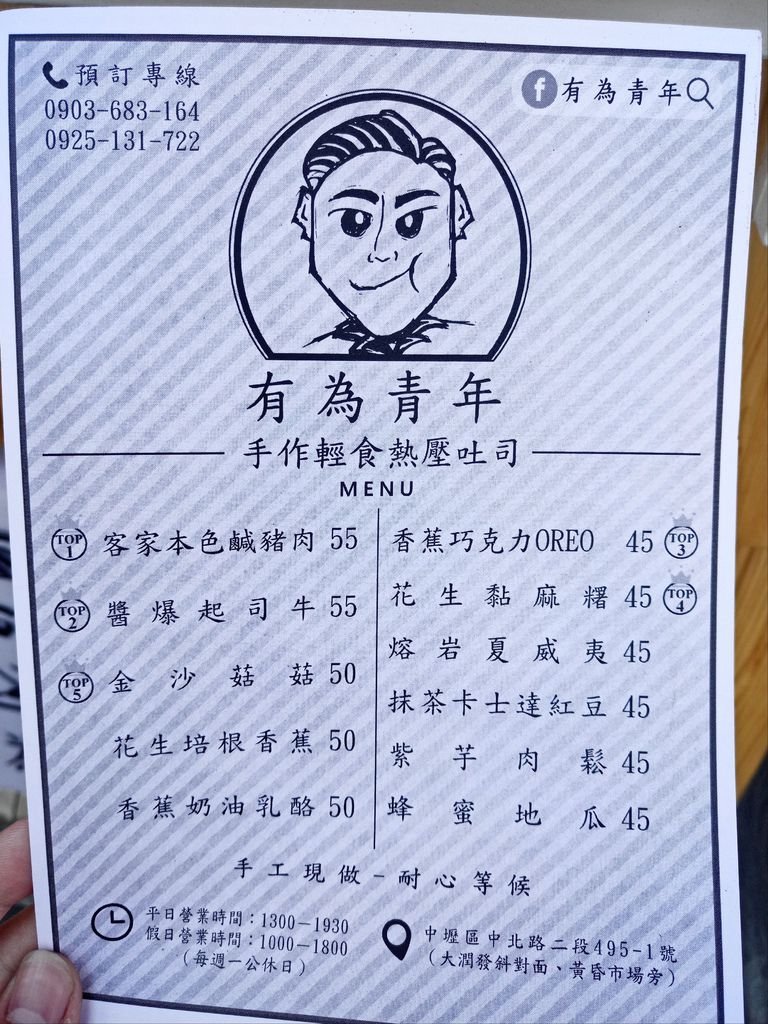 預訂專線
0903-683-164
0925-131-722
f 有為青年
有為青年
手作輕食熱壓吐司
MENU
TOP 1 客家本色鹹豬肉 55
TOP 2 醬爆起司牛 55
TOP 5 金沙菇菇 50
花生培根香蕉 50
香蕉奶油乳酪 50
香蕉巧克力OREO 45 TOP 3
花生黏麻糬 45 TOP 4
熔岩夏威夷 45
抹茶卡士達紅豆 45
紫芋肉鬆 45
蜂蜜地瓜 45
手工現做-耐心等候
平日營業時間：1300-1930
假日營業時間：1000-1800
（每週一公休日）
中壢區中北路二段495-1號
（大潤發斜對面、黃昏市場旁）